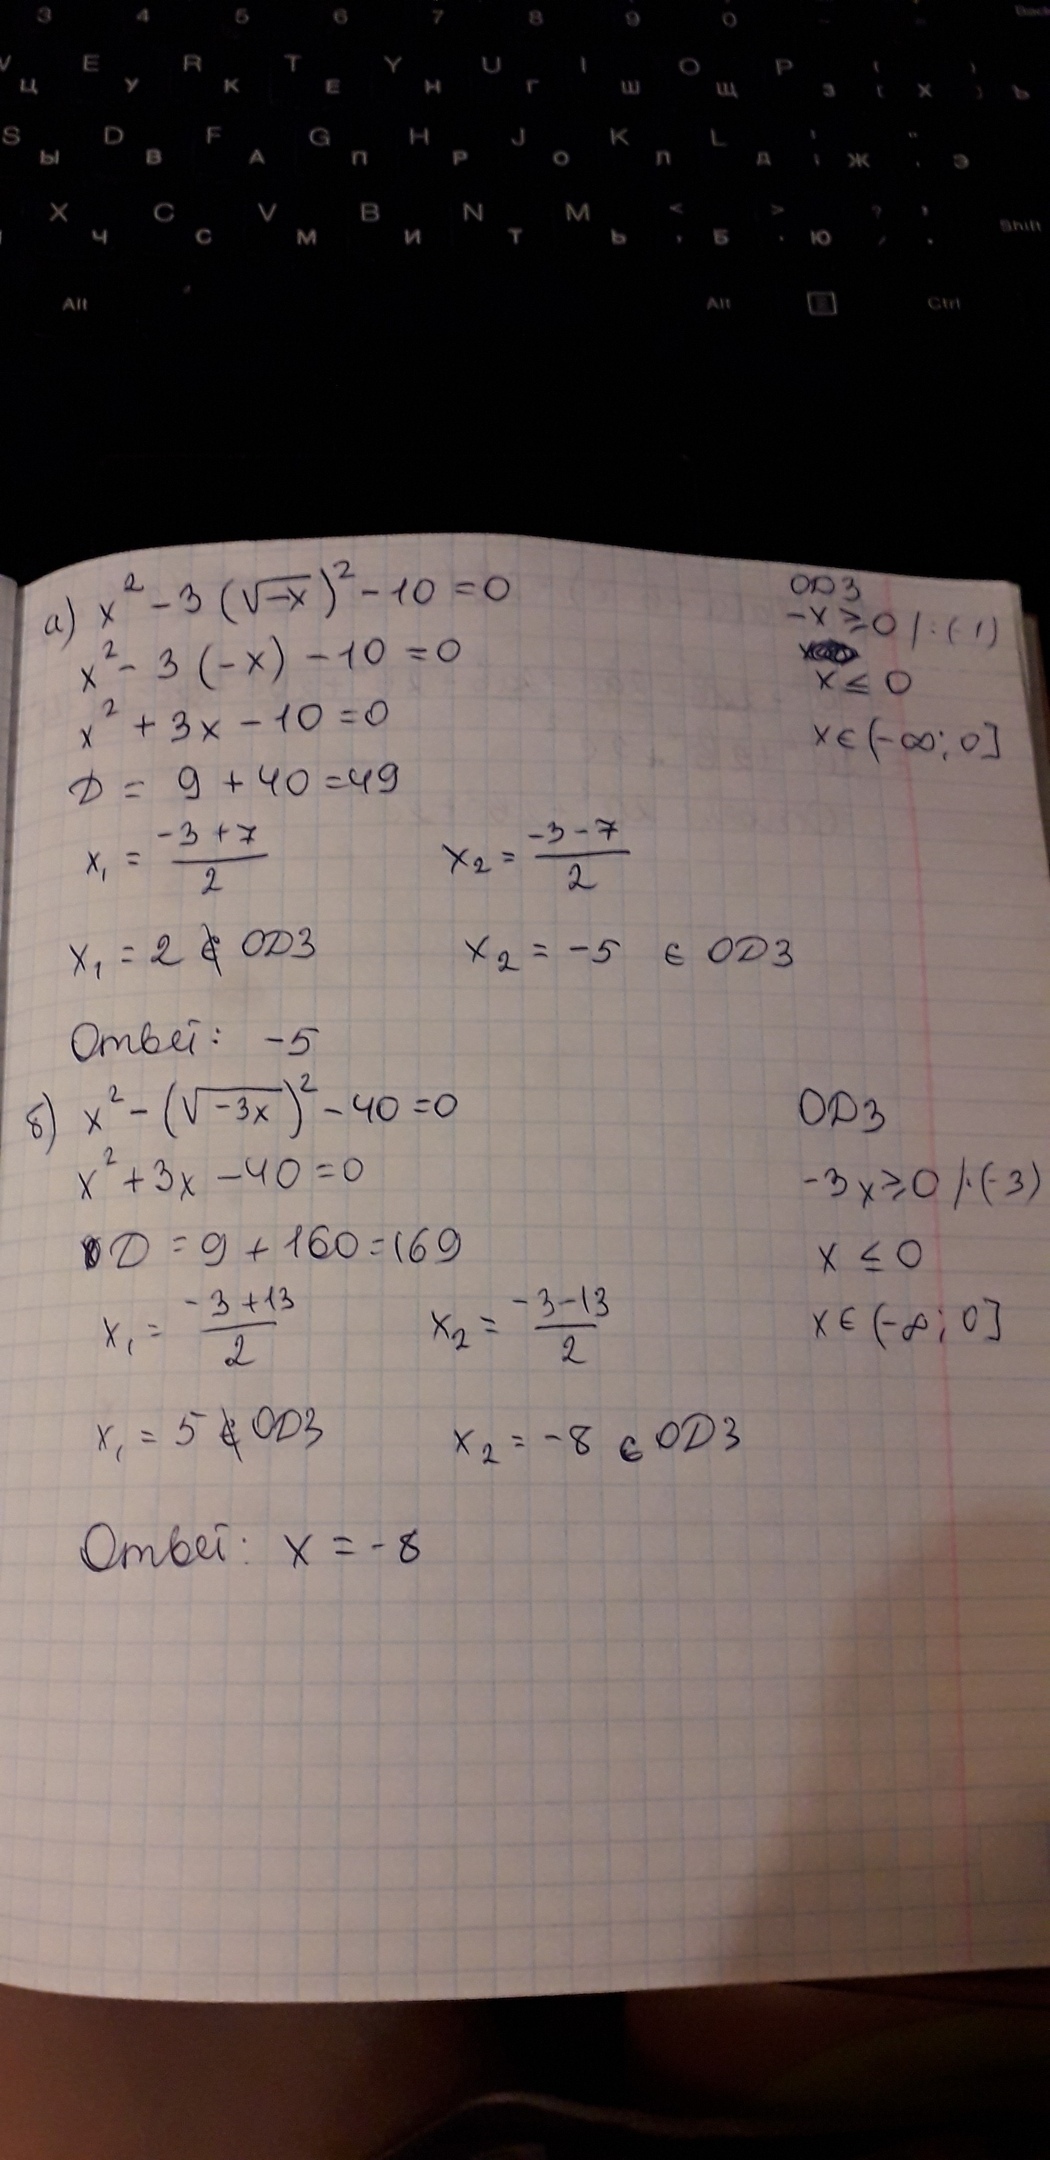 3 4 5 6 7 8 9 0
E R T Y U I O P
Ц У К Е Н Г Ш Щ З Х Ъ
S D F G H J K L
Ы В А П Р О Л Д Ж Э
X C V B N M < > ?
Ч С М И Т Ь Б Ю Shift
Alt Alt Ctrl
а) x² - 3(√-x)² - 10 = 0
x² - 3(-x) - 10 = 0
x² + 3x - 10 = 0
D = 9 + 40 = 49
x₁ = (-3+7)/2 x₂ = (-3-7)/2
x₁ = 2 ∉ ОДЗ x₂ = -5 ∈ ОДЗ
Ответ: -5
ОДЗ
-x ≥ 0 |:(-1)
x ≤ 0
x ∈ (-∞; 0]
б) x² - (√-3x)² - 40 = 0
x² + 3x - 40 = 0
D = 9 + 160 = 169
x₁ = (-3+13)/2 x₂ = (-3-13)/2
x₁ = 5 ∉ ОДЗ x₂ = -8 ∈ ОДЗ
Ответ: x = -8
ОДЗ
-3x ≥ 0 |:(-3)
x ≤ 0
x ∈ (-∞; 0]